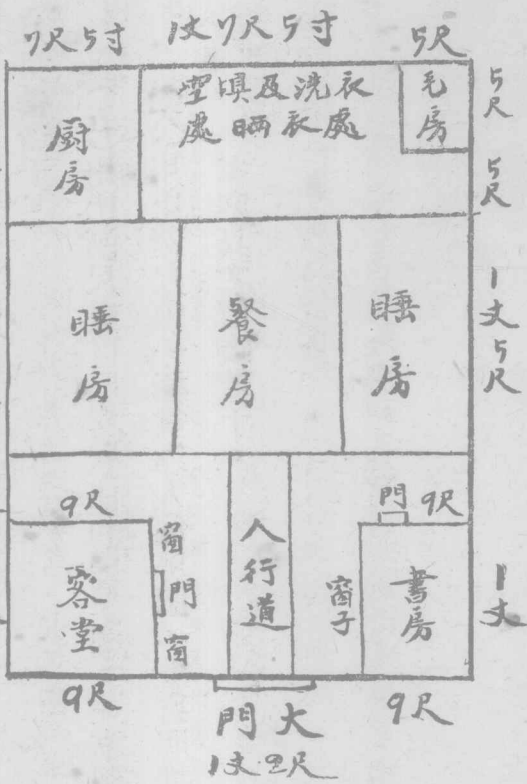 7尺5寸 1丈7尺5寸 5尺
廚房
空埧及洗衣
處晒衣處
毛房
5尺
5尺
睡房
餐房
睡房
1丈5尺
9尺
門 9尺
客堂
窗
門
窗
人行道
窗子
書房
1丈
9尺
門大
9尺